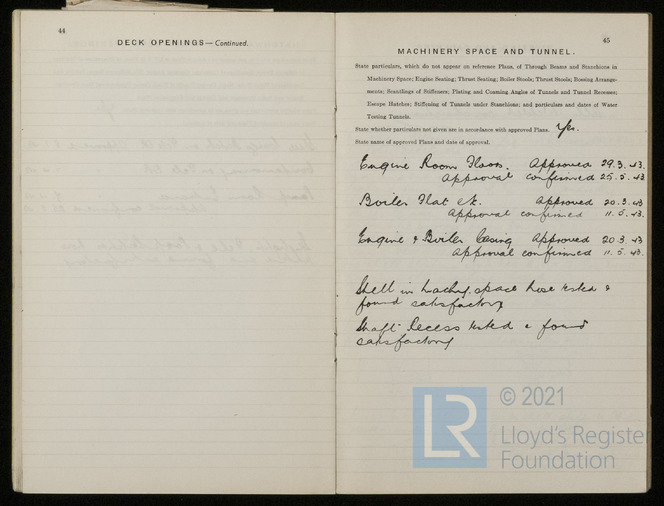 44
DECK OPENINGS—Continued.
45
MACHINERY SPACE AND TUNNEL.
State particulars, which do not appear on reference Plans, of Through Beams and Stanchions in
Machinery Space; Engine Seating; Thrust Seating; Boiler Stools; Thrust Stools; Bossing Arrange-
ments; Scantlings of Stiffeners; Plating and Coaming Angles of Tunnels and Tunnel Recesses;
Escape Hatches; Stiffening of Tunnels under Stanchions; and particulars and dates of Water
Testing Tunnels.
State whether particulars not given are in accordance with approved Plans. Yes.
State name of approved Plans and date of approval.
Engine Room Floors. Approved 29.3.43.
Approval confirmed 25.5.43.
Boiler Flat etc. Approved 20.3.43
Approval confirmed 11.5.43.
Engine & Boiler Casing Approved 20.3.43
Approval confirmed 11.5.43.
Shell in Machy. space hose tested &
found satisfactory
Shaft Recess tested & found
satisfactory
LR
© 2021
Lloyd's Register
Foundation